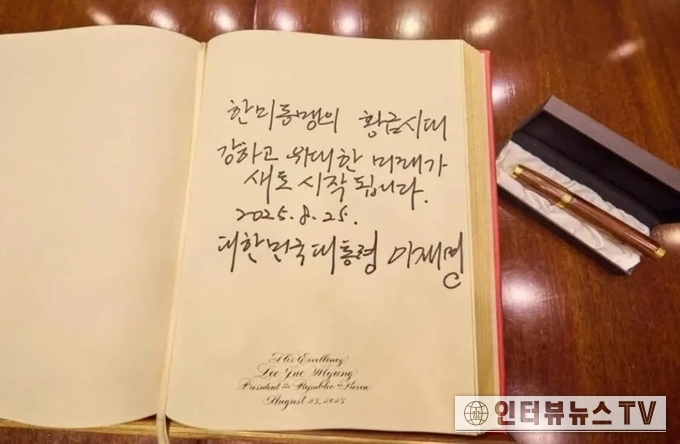 한미동맹의 황금시대
강하고 위대한 미래가
새로 시작됩니다.
2025.8.25.
대한민국 대통령 이재명
His Excellency
Lee Jae Myung
President of the Republic of Korea
August 25, 2025
인터뷰뉴스TV